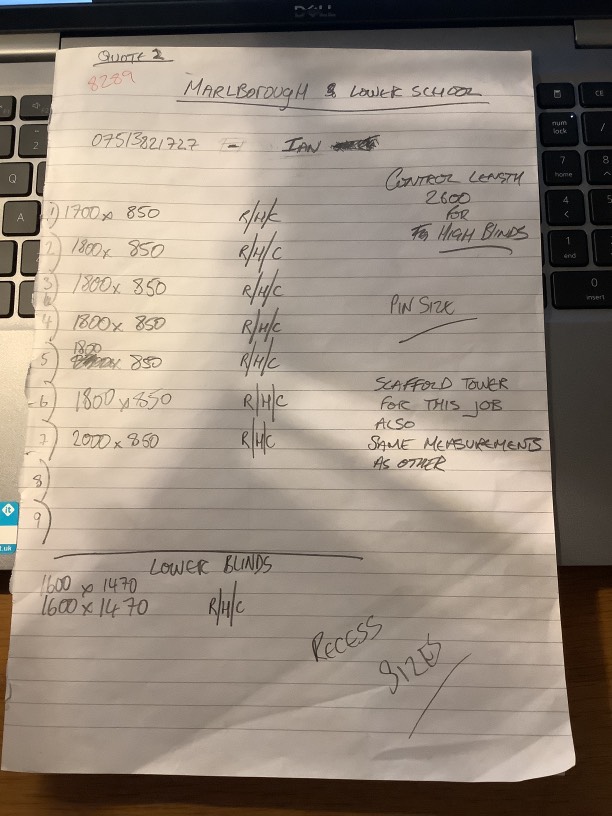 DELL
QUOTE 2
8289
MARLBOROUGH & LOWER SCHOOL
07513821727 - IAN
CONTROL LENGTH
2600
FOR
FOR HIGH BLINDS
1) 1700 x 850 R/H/C
2) 1800 x 850 R/H/C
3) 1800 x 850 R/H/C
4) 1800 x 850 R/H/C
1800
5) x 850 R/H/C
6) 1800 x 850 R/H/C
7) 2000 x 850 R/H/C
8)
9)
PIN SIZE
SCAFFOLD TOWER
FOR THIS JOB
ALSO
SAME MEASUREMENTS
AS OTHER
LOWER BLINDS
1600 x 1470
1600 x 1470 R/H/C
RECESS
SIZES
num
lock
7
home
8
4
1
end
2
0
insert
CE
Q
A
2
it
t.uk